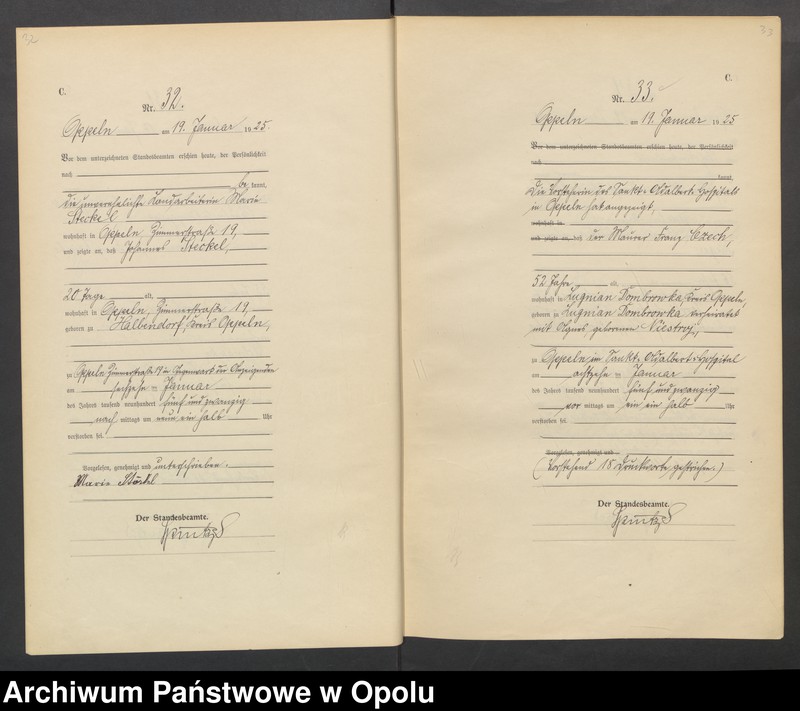 32
C.
Nr. 32.
Oppeln am 19. Januar 1925.
Vor dem unterzeichneten Standesbeamten erschien heute, der Persönlichkeit
nach
be kannt,
die unverehelichte Landarbeiterin Marie
Steckel
wohnhaft in Oppeln, Zimmerstraße 19,
und zeigte an, daß Johannes Steckel,
20 Tage alt,
wohnhaft in Oppeln, Zimmerstraße 19,
geboren zu Halbendorf, Kreis Oppeln,
zu Oppeln Zimmerstraße 19 in Gegenwart der Anzeigenden
am sechzehn ten Januar
des Jahres tausend neunhundert fünf und zwanzig
nach mittags um neun ein halb Uhr
verstorben sei.
Vorgelesen, genehmigt und unterschrieben.
Marie
Der Standesbeamte.
33
C.
Nr. 33.
Oppeln am 19. Januar 1925
Vor dem unterzeichneten Standesbeamten erschien heute, der Persönlichkeit
nach
kannt,
Die Vorsteherin des Sankt. Adalbert. Hospitals
in Oppeln hat angezeigt,
wohnhaft in
und zeigte an, daß der Maurer Franz Czech,
52 Jahre alt,
wohnhaft in Lugnian Dombrowka, Kreis Oppeln,
geboren zu Lugnian Dombrowka, verheiratet
mit Agnes geborenen Niestroj,
zu Oppeln im Sankt. Adalbert. Hospital
am achtzehn ten Januar
des Jahres tausend neunhundert fünf und zwanzig
vor mittags um ein ein halb Uhr
verstorben sei.
Vorgelesen, genehmigt und
(Vorstehend 15 Druckworte gestrichen.)
Der Standesbeamte.
Archiwum Państwowe w Opolu